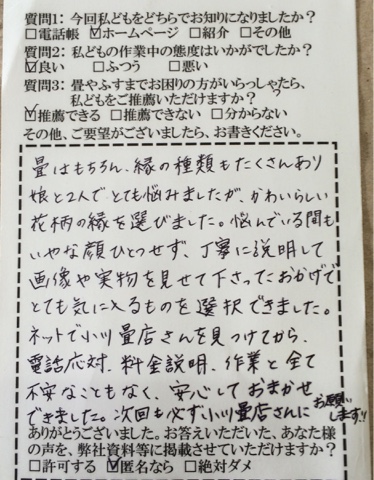 質問1: 今回私どもをどちらでお知りになりましたか?
□電話帳 ☑ホームページ □紹介 □その他
質問2: 私どもの作業中の態度はいかがでしたか?
☑良い □ふつう □悪い
質問3: 畳やふすまでお困りの方がいらっしゃったら、
私どもをご推薦いただけますか?
☑推薦できる □推薦できない □分からない
その他、ご要望がございましたら、お書きください。
畳はもちろん、縁の種類もたくさんあり
娘と2人でとても悩みましたが、かわいらしい
花柄の縁を選びました。悩んでいる間も
いやな顔ひとつせず、丁寧に説明して
画像や実物を見せて下さったおかげで
とても気に入るものを選択できました。
ネットで小川畳店さんを見つけてから、
電話応対、料金説明、作業と全て
不安なこともなく、安心しておまかせ
できました。次回も必ず小川畳店さんに
お願い
します!!
ありがとうございました。お答えいただいた、あなた様
の声を、弊社資料等に掲載させていただけますか?
□許可する ☑匿名なら □絶対ダメ